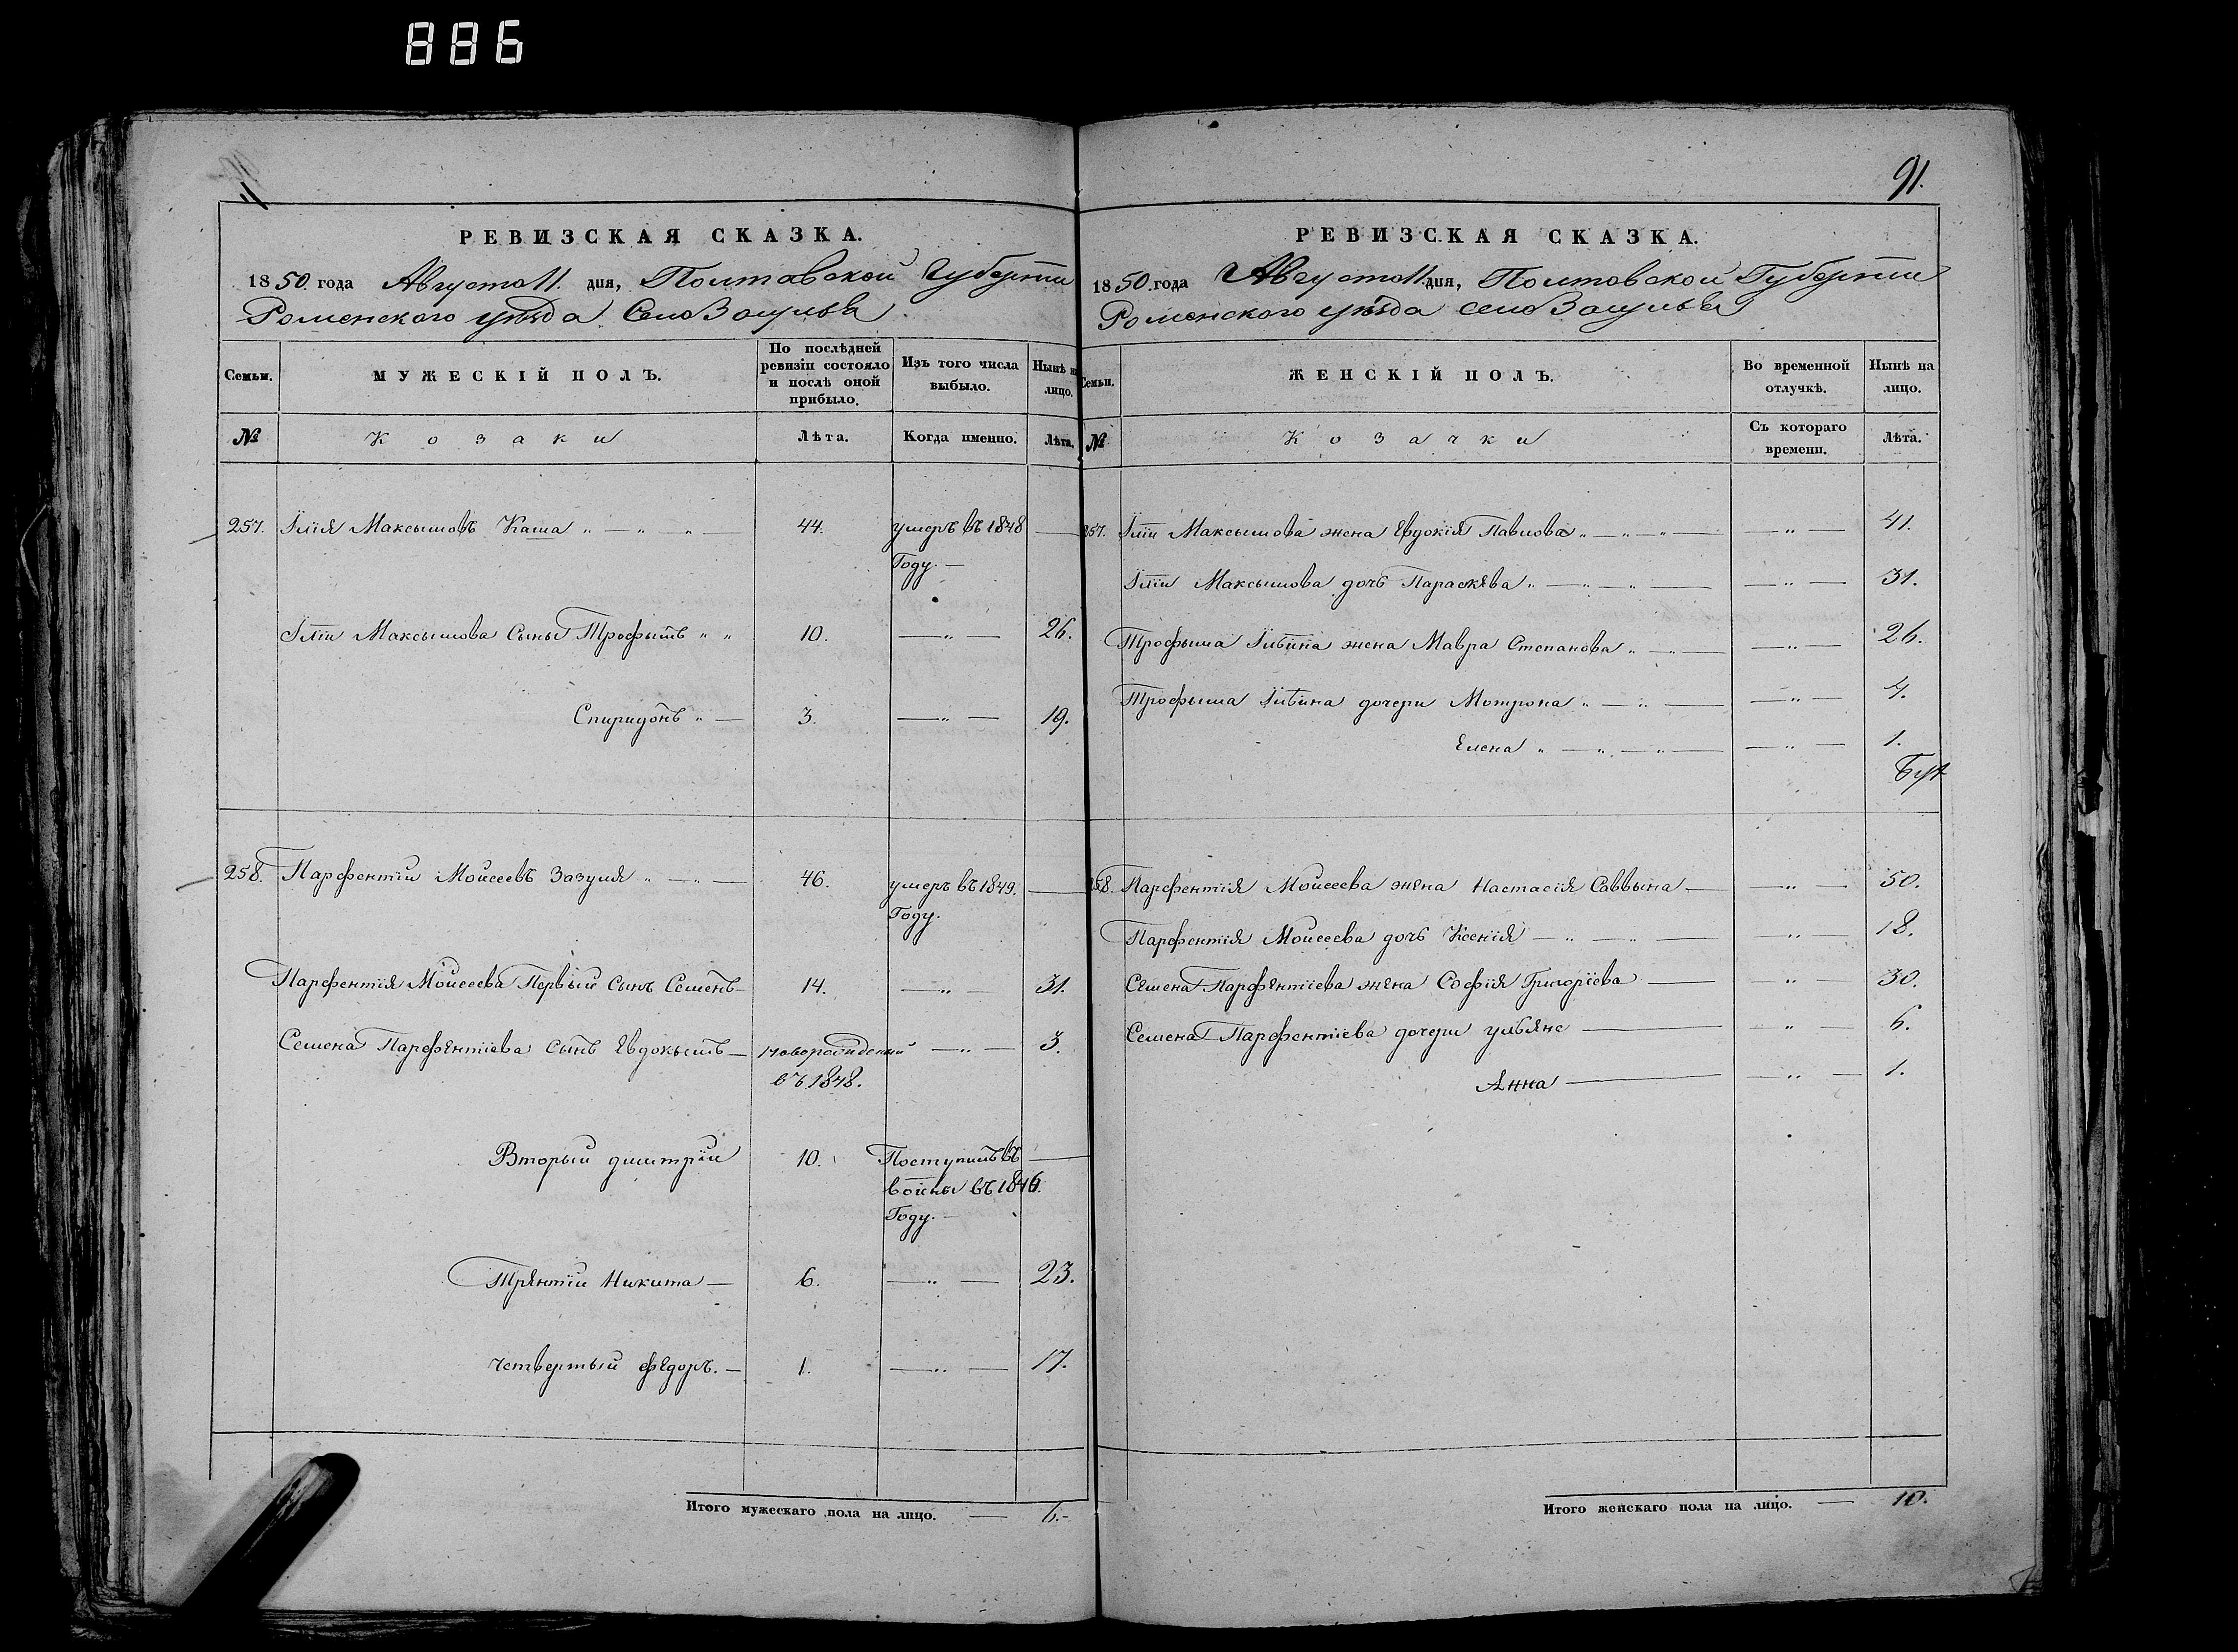 886
91.
РЕВИЗСКАЯ СКАЗКА.
1850 года Августа 11. дня, Полтавской Губернiи
Роменского уѣзда Село Засулье
Семьи.
МУЖЕСКІЙ ПОЛЪ.
По послѣдней ревизіи состояло и послѣ оной прибыло.
Изъ того числа выбыло.
Нынѣ на лицо.
№
Козаки
Лѣта.
Когда именно.
Лѣта.
257. Ілія Максымовъ Каша 44. умеръ въ 1848
Году.
Іліи Максымова Сыны Трофымъ 10. 26.
Спиридонъ 3. 19.
258. Парфентiй Моисеевъ Зазуля 46. умеръ въ 1849.
Году.
Парфентiя Моисеева Первый сынъ Семенъ 14. 31.
Семена Парфентiева сынъ Евдокымъ новорожденный 3.
въ 1848.
Вторый димитрiй 10. Поступилъ въ
воины въ 1846.
Году.
Третiй Никита 6. 23.
Четвертый федоръ. 1. 17.
Итого мужескаго пола на лицо. 6.
РЕВИЗСКАЯ СКАЗКА.
1850. года Августа 11. дня, Полтавской Губернiи
Роменского уѣзда село Засулье
Семьи.
ЖЕНСКІЙ ПОЛЪ.
Во временной отлучкѣ.
Нынѣ на лицо.
№
Козачки
Съ котораго времени.
Лѣта.
257. Іліи Максымова жена Евдокiя Павлова 41.
Іліи Максымова дочь Параскева 31.
Трофыма Ільина жена Мавра Степанова 26.
Трофыма Ільина дочери Мотрона 4.
Елена 1.
258. Парфентiя Моисеева жена Настасiя Саввына 50.
Парфентiя Моисеева дочь Ксенiя 18.
Семена Парфентiева жена Софiя Григорiева 30.
Семена Парфентiева дочери ульяне 6.
Анна 1.
Итого женскаго пола на лицо. 10.